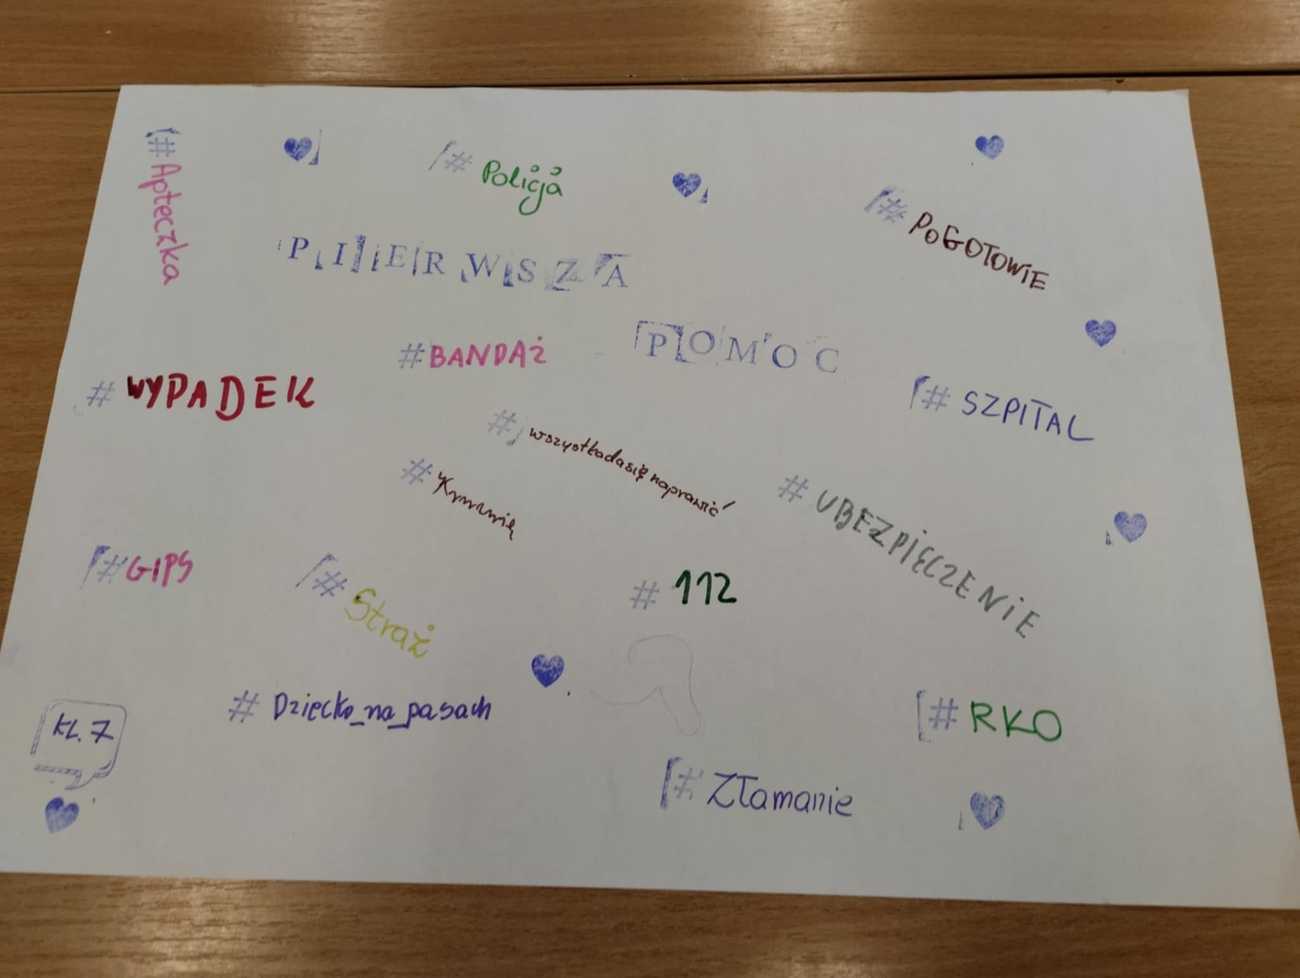 #Apteczka
# Policja
# POGOTOWIE
PIERWSZA
POMOC
#BANDAŻ
# WYPADEK
# SZPITAL
# wszystkodasięnaprawić
# UBEZPIĘCZENIE
#GIPS
# Straż
# 112
# Dziecko_na_pasach
# RKO
KL. 7
# Złamanie